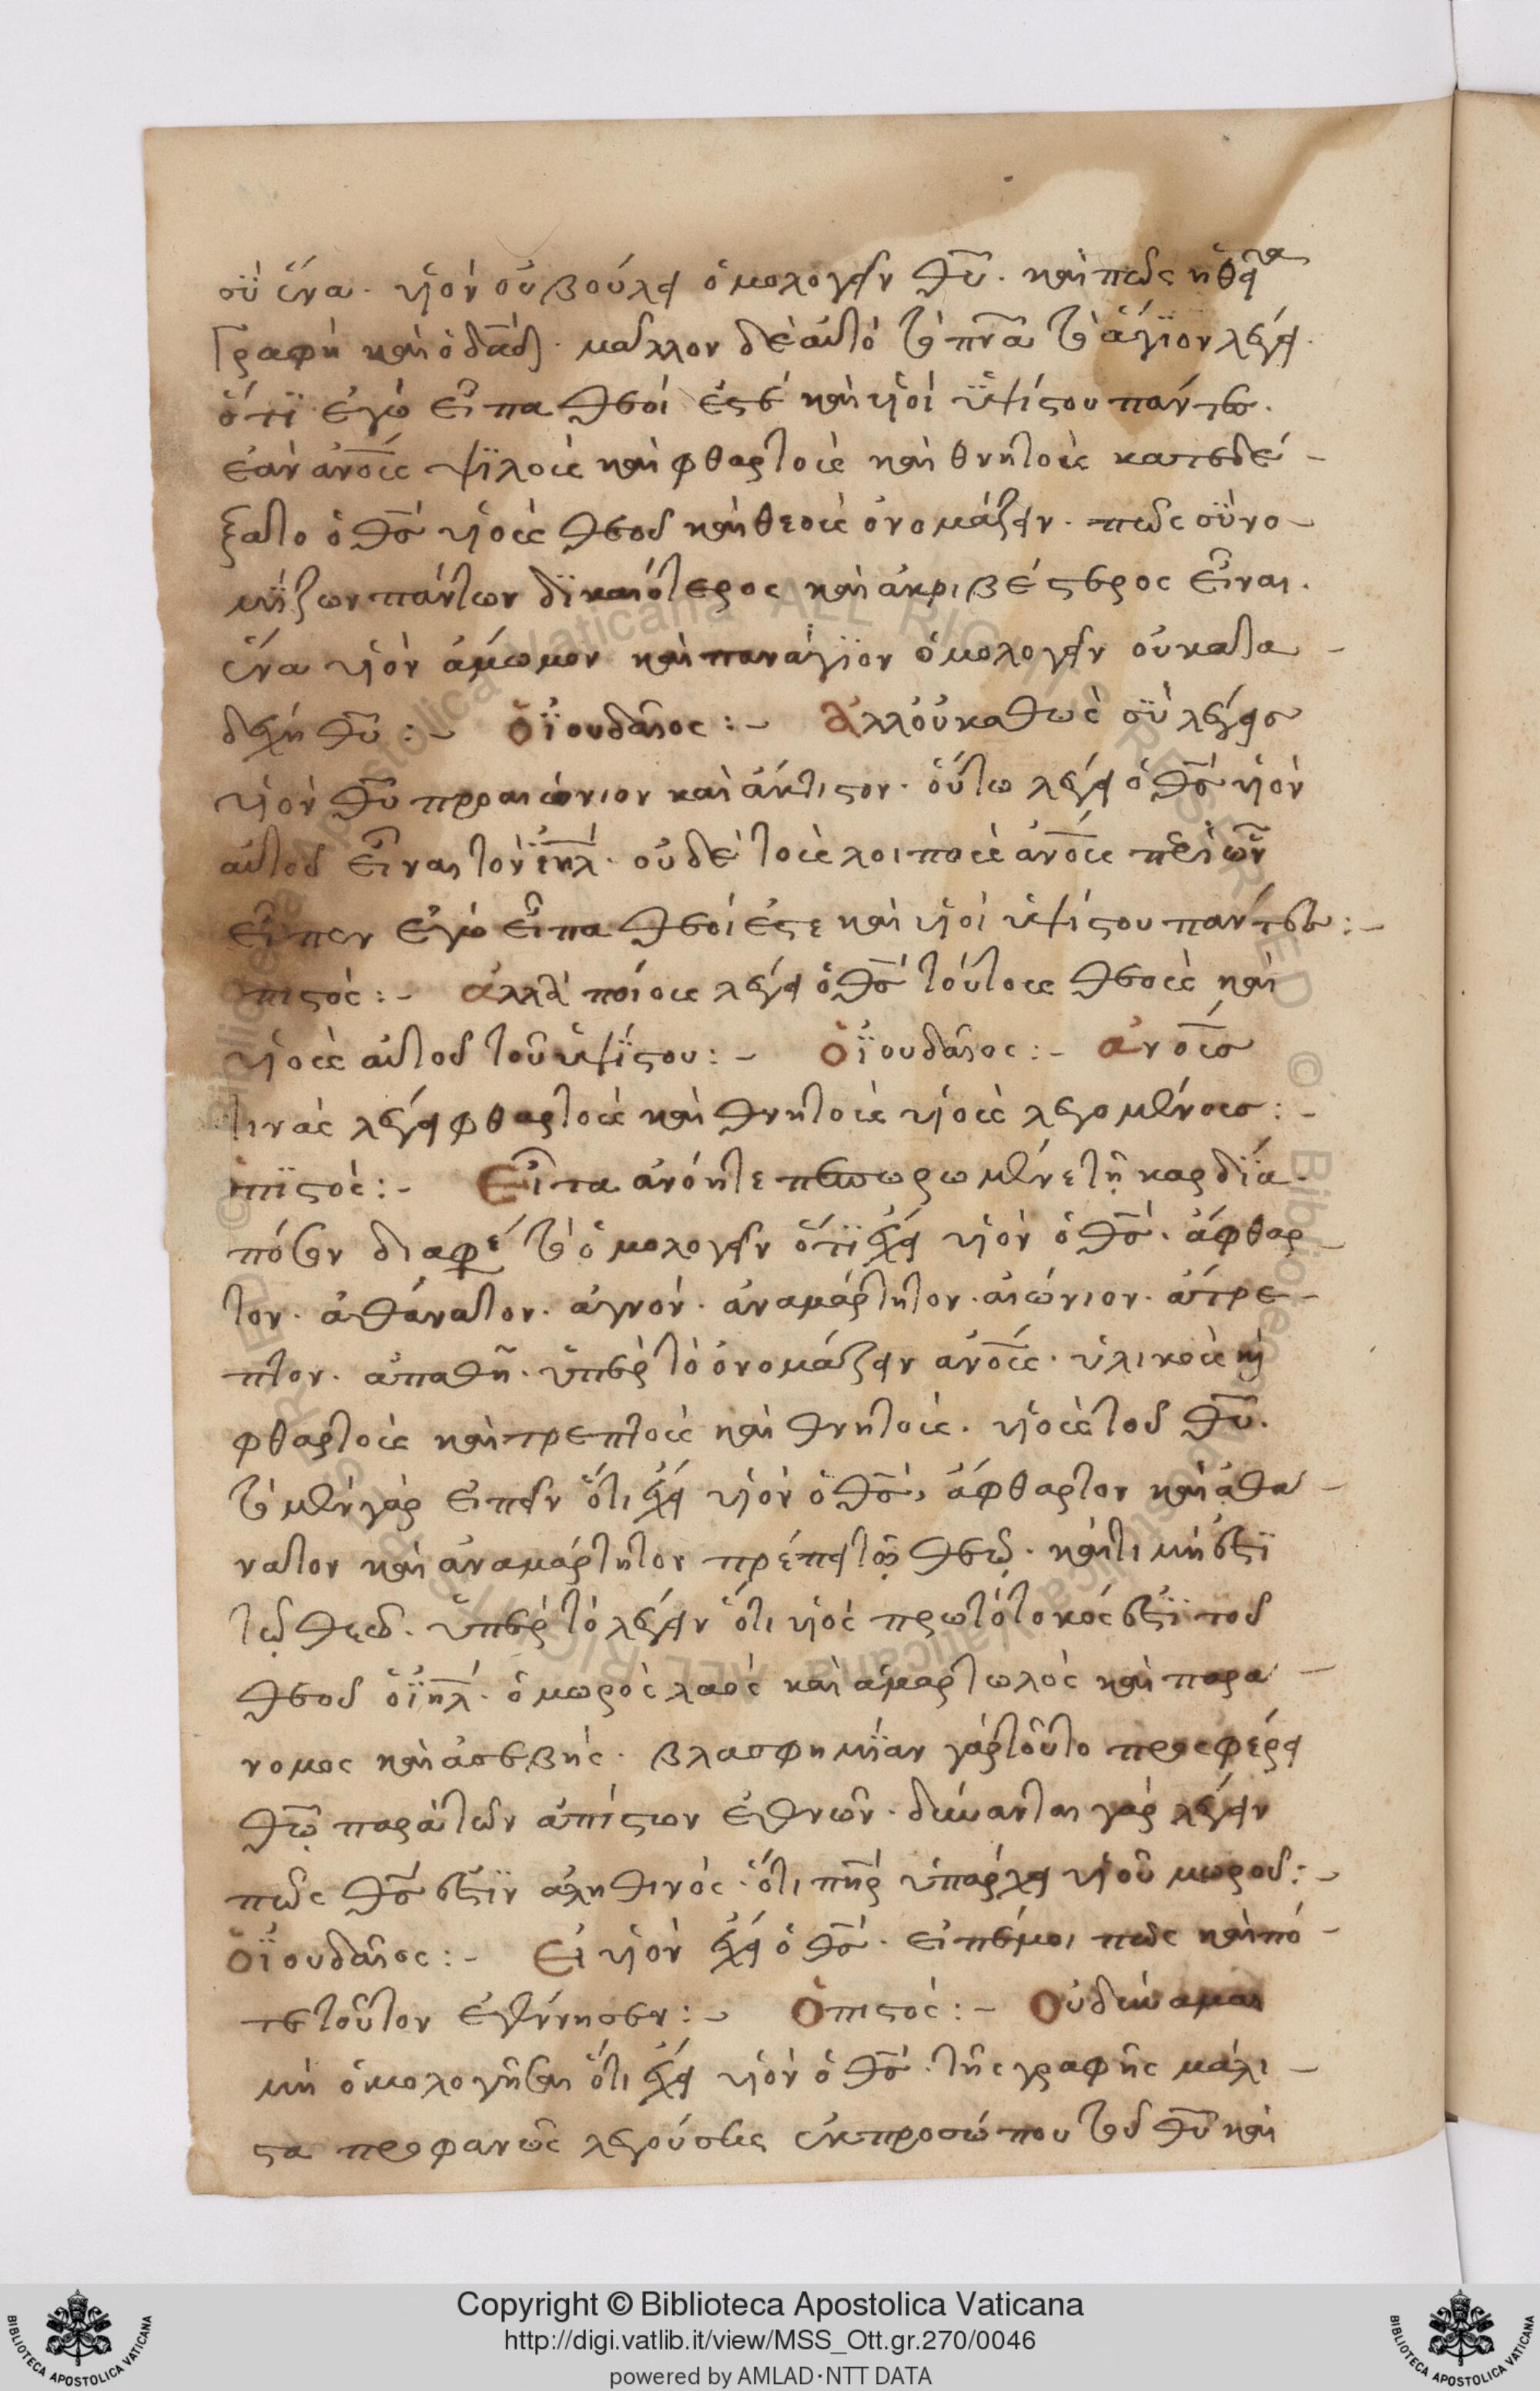 σὺ ἕνα. υἱὸν οὐ βούλει ὁμολογεῖν θῡ. καὶ πῶς ἡ θεία
γραφὴ καὶ ὁ δᾱδ. μᾶλλον δὲ αὐτὸ τὸ πνᾱ τὸ ἅγϊον λέγει.
ὅτϊ ἐγὼ εἶπα θεοί ἐστέ καὶ υἱοὶ ὑψίστου πάντες.
ἐὰν ἀνο̄υς ψϊλοὺς καὶ φθαρτοὺς καὶ θνητοὺς κατεδέ-
ξατο ὁ θς̄ υἱοὺς θεοῦ καὶ θεοὺς ὀνομάζειν. πῶς σὺ νο-
μΐζων πάντων δϊκαιότερος καὶ ἀκριβέστερος εἶναι.
ἕνα υἱὸν ἄμωμον καὶ πανάγϊον ὁμολογεῖν οὐ κατα-
δέχη θῡ :- ὁ ϊουδαῖος :- Ἀλλ' οὐ καθὼς σὺ λέγεις
υἱὸν θῡ προαιώνιον καὶ ἄκτιστον. οὕτω λέγει ὁ θς̄ υἱὸν
αὐτοῦ εἶναι τὸν ῑηλ. οὐδὲ τοὺς λοιποὺς ἀνο̄υς περὶ ὧν
εἶπεν ἐγὼ εἶπα θεοί ἐστε καὶ υἱοὶ ὑψίστου πάντες :-
ὁ πιστός :- ἀλλὰ ποίους λέγει ὁ θς̄ τούτους θεοὺς καὶ
υἱοὺς αὐτοῦ τοῦ ὑψΐστου :- ὁ ϊουδαῖος :- ἀνο̄υς
τινὰς λέγει φθαρτοὺς καὶ θνητοὺς υἱοὺς λεγομένους :-
ὁ πϊστός :- Εἶτα ἀνόητε πεπωρωμένε τῇ καρδίᾳ.
πόσον διαφέρει τὸ ὁμολογεῖν ὅτϊ ἔχει υἱὸν ὁ θς̄. ἄφθαρ-
τον. ἀθάνατον. ἁγνόν. ἀναμάρτητον. αἰώνιον. ἄτρε-
πτον. ἀπαθῆ. ὑπὲρ τὸ ὀνομάζειν ἀνο̄υς. ὑλικοὺς καὶ
φθαρτοὺς καὶ τρεπτοὺς καὶ θνητούς. υἱοὺς τοῦ θῡ.
τὸ μὲν γὰρ εἰπεῖν ὅτι ἔχει υἱὸν ὁ θς̄, ἄφθαρτον καὶ ἀθά-
νατον καὶ ἀναμάρτητον πρέπει τῷ θεῷ. καὶ τιμή ἐστϊ
τῷ θεῷ. ὑπὲρ τὸ λέγειν ὅτι υἱὸς πρωτότοκός ἐστϊ τοῦ
θεοῦ ὁ ϊηλ. ὁ μωρὸς λαὸς καὶ ἁμαρτωλὸς καὶ παρά-
νομος καὶ ἀσεβής. βλασφημΐαν γὰρ τοῦτο προσφέρει
θῶ παρὰ τῶν ἀπίστων ἐθνῶν. δύνανται γὰρ λέγειν
πῶς θς̄ ἐστϊν ἀληθινός. ὅτι πηρ̄ ὑπάρχει υἱοῦ μωροῦ :-
ὁ ϊουδαῖος :- Εἰ υἱὸν ἔχει ὁ θς̄. εἰπέ μοι πῶς καὶ πό-
τε τοῦτον ἐγέννησεν :- ὁ πιστός :- Οὐ δύναμαι
μὴ ὁμολογῆσαι ὅτι ἔχει υἱὸν ὁ θς̄. τῆς γραφῆς μάλι-
στα προφανῶς λεγούσης ἐκ προσώπου τοῦ θῡ καὶ
Copyright © Biblioteca Apostolica Vaticana
http://digi.vatlib.it/view/MSS_Ott.gr.270/0046
powered by AMLAD·NTT DATA